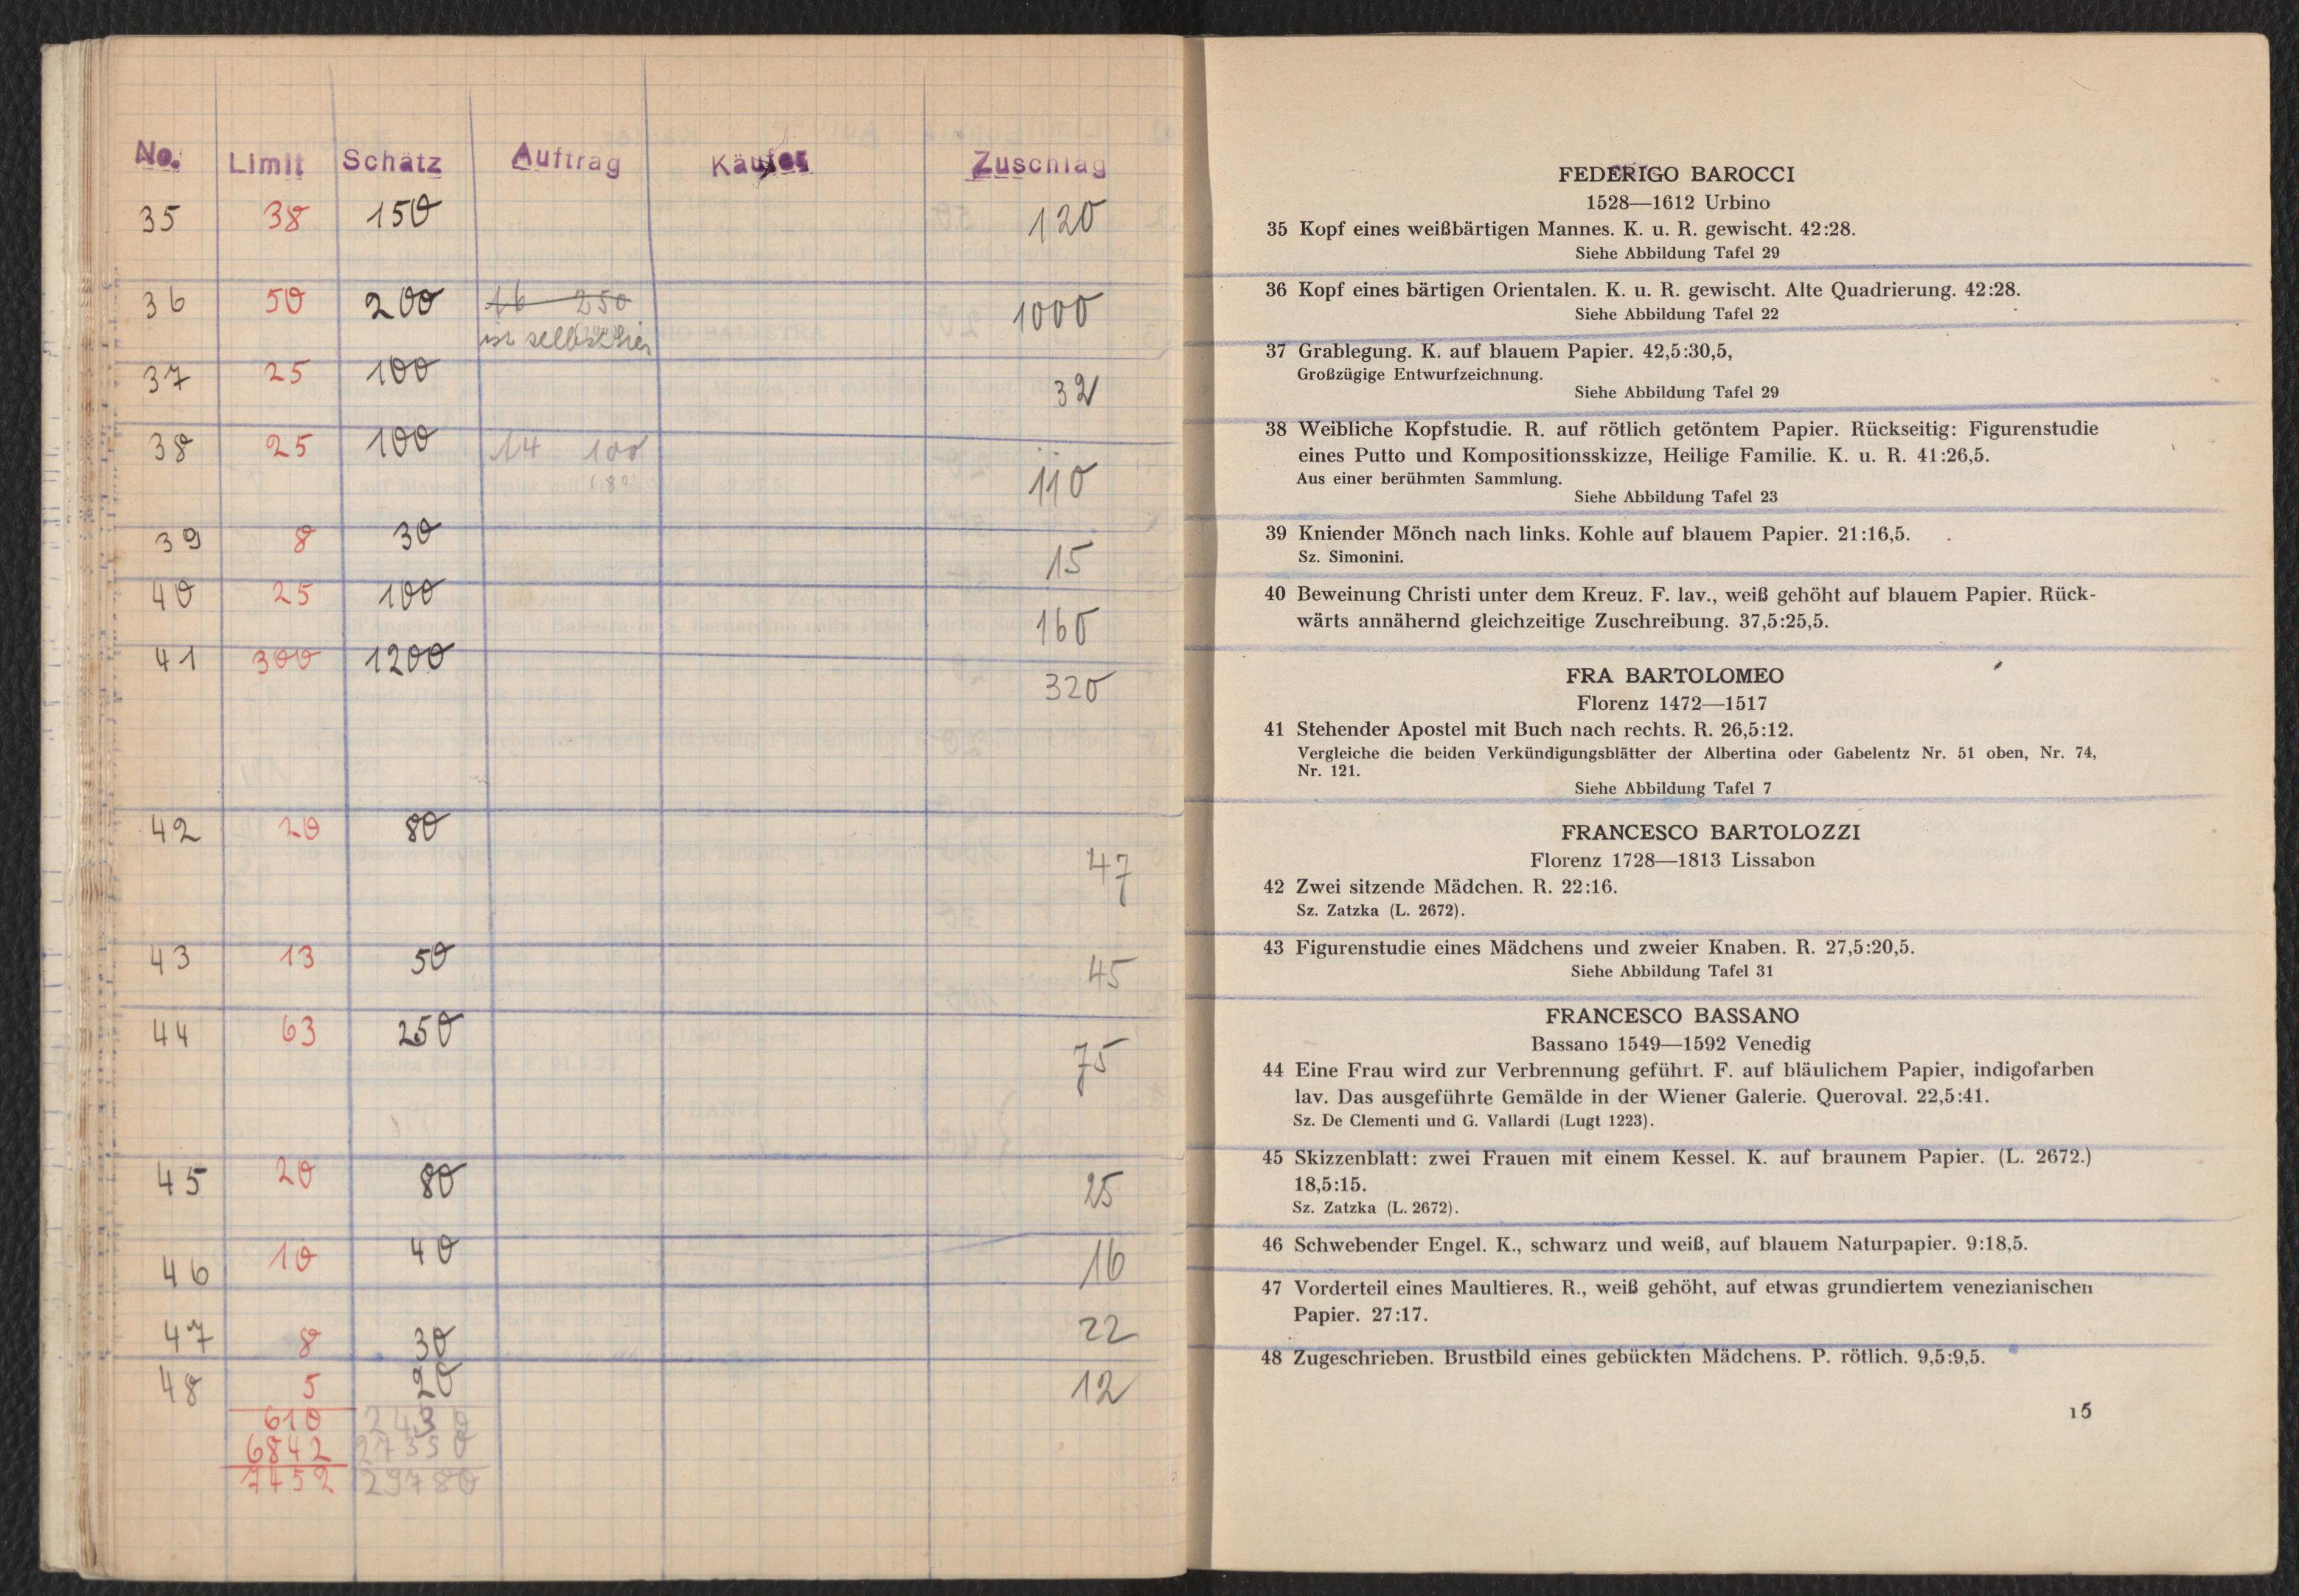 No. Limit Schätz Auftrag Käufer Zuschlag
35 38 150 120
36 50 200 16 250 1000
ist selbst hier
37 25 100 32
38 25 100 14 100 110
39 8 30 15
40 25 100 160
41 300 1200 320
42 20 80 47
43 13 50 45
44 63 250 75
45 20 80 25
46 10 40 16
47 8 30 22
48 5 20 12
610 2430
6842 27350
7452 29780
FEDERIGO BAROCCI
1528—1612 Urbino
35 Kopf eines weißbärtigen Mannes. K. u. R. gewischt. 42:28.
Siehe Abbildung Tafel 29
36 Kopf eines bärtigen Orientalen. K. u. R. gewischt. Alte Quadrierung. 42:28.
Siehe Abbildung Tafel 22
37 Grablegung. K. auf blauem Papier. 42,5:30,5,
Großzügige Entwurfzeichnung.
Siehe Abbildung Tafel 29
38 Weibliche Kopfstudie. R. auf rötlich getöntem Papier. Rückseitig: Figurenstudie
eines Putto und Kompositionsskizze, Heilige Familie. K. u. R. 41:26,5.
Aus einer berühmten Sammlung.
Siehe Abbildung Tafel 23
39 Kniender Mönch nach links. Kohle auf blauem Papier. 21:16,5.
Sz. Simonini.
40 Beweinung Christi unter dem Kreuz. F. lav., weiß gehöht auf blauem Papier. Rück-
wärts annähernd gleichzeitige Zuschreibung. 37,5:25,5.
FRA BARTOLOMEO
Florenz 1472—1517
41 Stehender Apostel mit Buch nach rechts. R. 26,5:12.
Vergleiche die beiden Verkündigungsblätter der Albertina oder Gabelentz Nr. 51 oben, Nr. 74,
Nr. 121.
Siehe Abbildung Tafel 7
FRANCESCO BARTOLOZZI
Florenz 1728—1813 Lissabon
42 Zwei sitzende Mädchen. R. 22:16.
Sz. Zatzka (L. 2672).
43 Figurenstudie eines Mädchens und zweier Knaben. R. 27,5:20,5.
Siehe Abbildung Tafel 31
FRANCESCO BASSANO
Bassano 1549—1592 Venedig
44 Eine Frau wird zur Verbrennung geführt. F. auf bläulichem Papier, indigofarben
lav. Das ausgeführte Gemälde in der Wiener Galerie. Queroval. 22,5:41.
Sz. De Clementi und G. Vallardi (Lugt 1223).
45 Skizzenblatt: zwei Frauen mit einem Kessel. K. auf braunem Papier. (L. 2672.)
18,5:15.
Sz. Zatzka (L. 2672).
46 Schwebender Engel. K., schwarz und weiß, auf blauem Naturpapier. 9:18,5.
47 Vorderteil eines Maultieres. R., weiß gehöht, auf etwas grundiertem venezianischen
Papier. 27:17.
48 Zugeschrieben. Brustbild eines gebückten Mädchens. P. rötlich. 9,5:9,5.
15